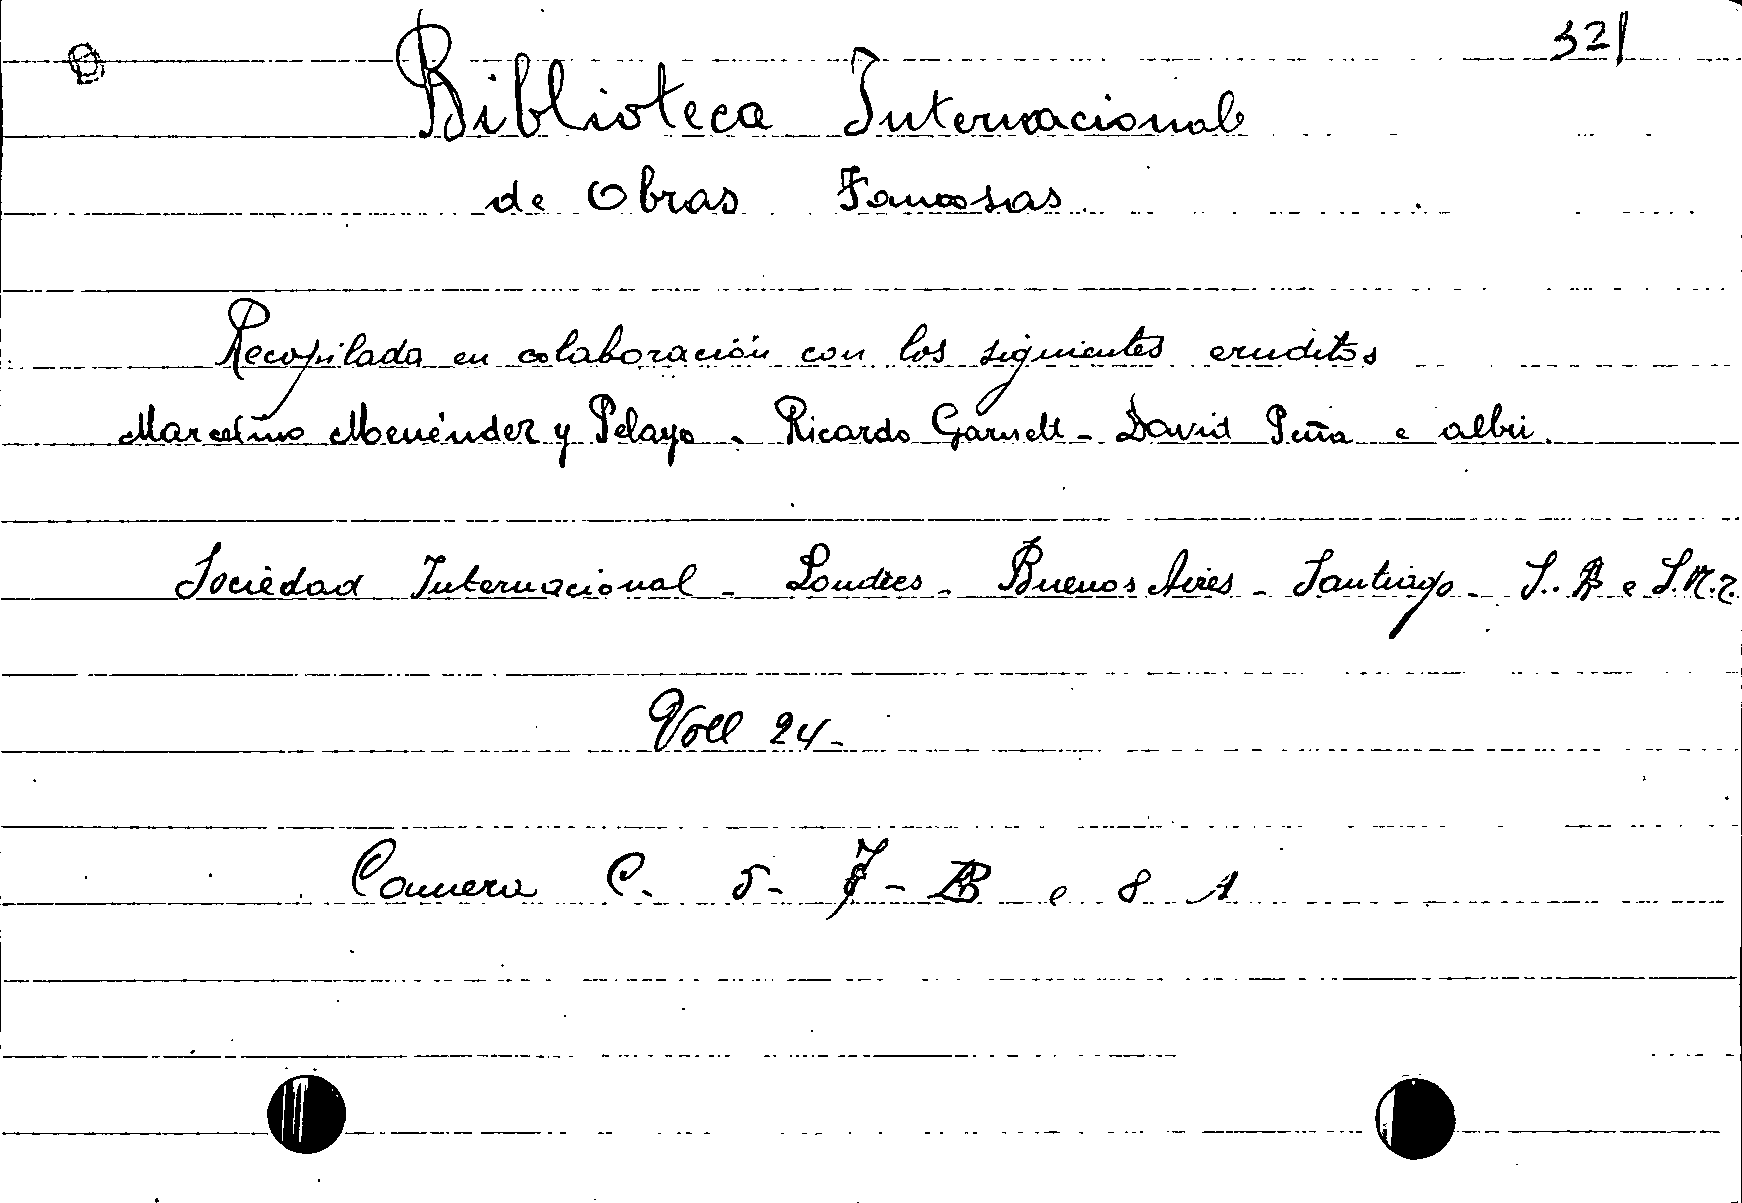 321
Biblioteca Internacional
de Obras Famosas
Recopilada en colaboración con los siguientes eruditos
Marcelino Menéndez y Pelayo - Ricardo Garnett - David Peña e altri.
Sociedad Internacional - Londres - Buenos Aires - Santiago - S. A e S.N.T.
Voll 24 -
Camera C. 5 - F - B e 8 A